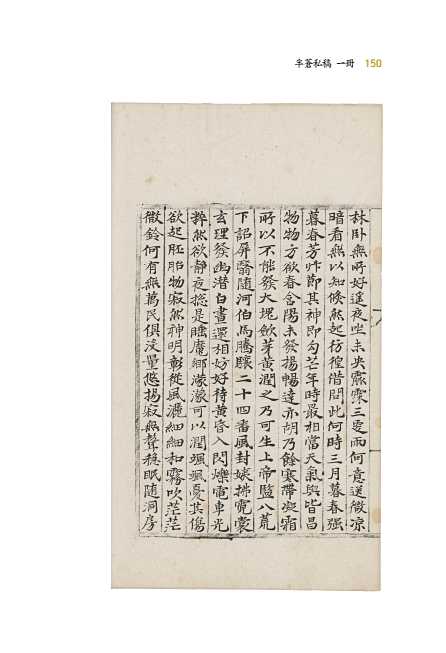 半蒼私稿 一冊 150
林卧無所好遙夜坐未央霡霂三更雨何意送微凉
暗看無以知倏然起彷徨借問此何時三月暮春强
暮春芳草節其神即勾芒年時最相當天氣與皆昌
物物方欲春含陽未發揚暢達亦胡乃餘寒帶凝霜
所以不能發大塊歛芽黃潤之乃可生上帝監八荒
下詔屏翳隨河伯馬騰驤二十四番風封姨拂霓裳
玄理發幽潜白晝還相妨好待黃昏入閃爍電車光
粹然欲靜夜揔是睡魔鄉濛濛可以潤颯颯憂其傷
欲起胚胎物寂然神明彰從風灑細細和霧吹茫茫
微鈴何有無萬民俱沒量悠揚寂無聲穩眠随洞房